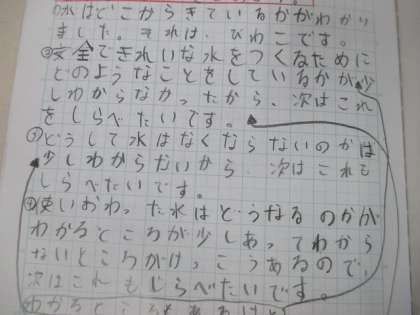 ①水はどこからきているかがわかり
ました。それは、びわこです。
②安全できれいな水をつくるために
どのようなことをしているかが少
しわからなかったから、次はこれ
をしらべたいです。
③どうして水はなくならないのかは
少しわからないから、次はこれも
しらべたいです。
④使いおわった水はどうなるのかが
わかるところが少しあってわから
ないところがけっこうあるので、
次はこれもしらべたいです。
わかるところもあるけど